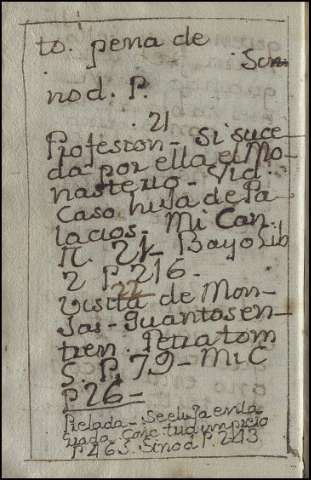 to. pena de
Sin
nod. P.
21
Profesion - Si suce
da por ella el Mo-
nasterio - vid.
Caso hija de Pa
lacios - Mi Can.
n. 21 - Bayo lib
2 P. 216 -
22
Visita de Mon-
Jas - quantos en-
tren. Petra tom
5. P. 79 - Mi C
P 26 -
Prelada - Se elija en la
P 463. Sinod P. 243